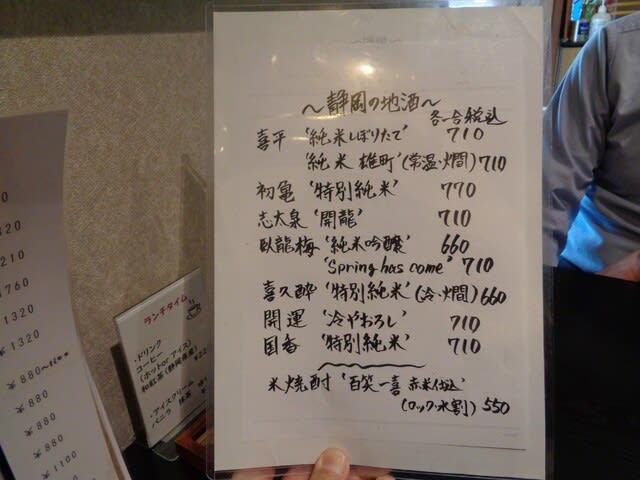 ～静岡の地酒～
各一合税込
喜平 '純米しぼりたて' 710
'純米 雄町'(常温・燗) 710
初亀 '特別純米' 770
志太泉 '開龍' 710
臥龍梅 '純米吟醸' 660
'Spring has come' 710
喜久酔 '特別純米'(冷・燗) 660
開運 '冷やおろし' 710
国香 '特別純米' 710
米焼酎 '百笑一喜 赤米仕込'
(ロック・水割) 550
ランチタイム
・ドリンク
コーヒー
(ホットor アイス)
和紅茶(静岡県産)
・アイスクリーム
バニラ 抹茶
1320
￥880～
￥880
￥880
￥880
￥1100